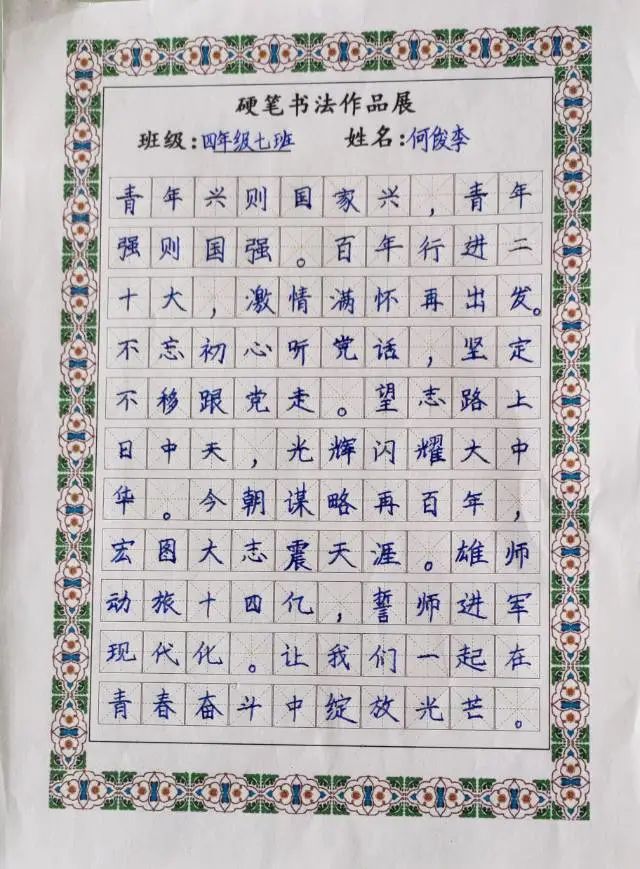 硬笔书法作品展
班级:四年级七班 姓名:何俊李
青年兴则国家兴,青年
强则国强。百年行进二
十大,激情满怀再出发。
不忘初心听党话,坚定
不移跟党走。望志路上
日中天,光辉闪耀大中
华。今朝谋略再百年,
宏图大志震天涯。雄师
动旅十四亿,誓师进军
现代化。让我们一起在
青春奋斗中绽放光芒。